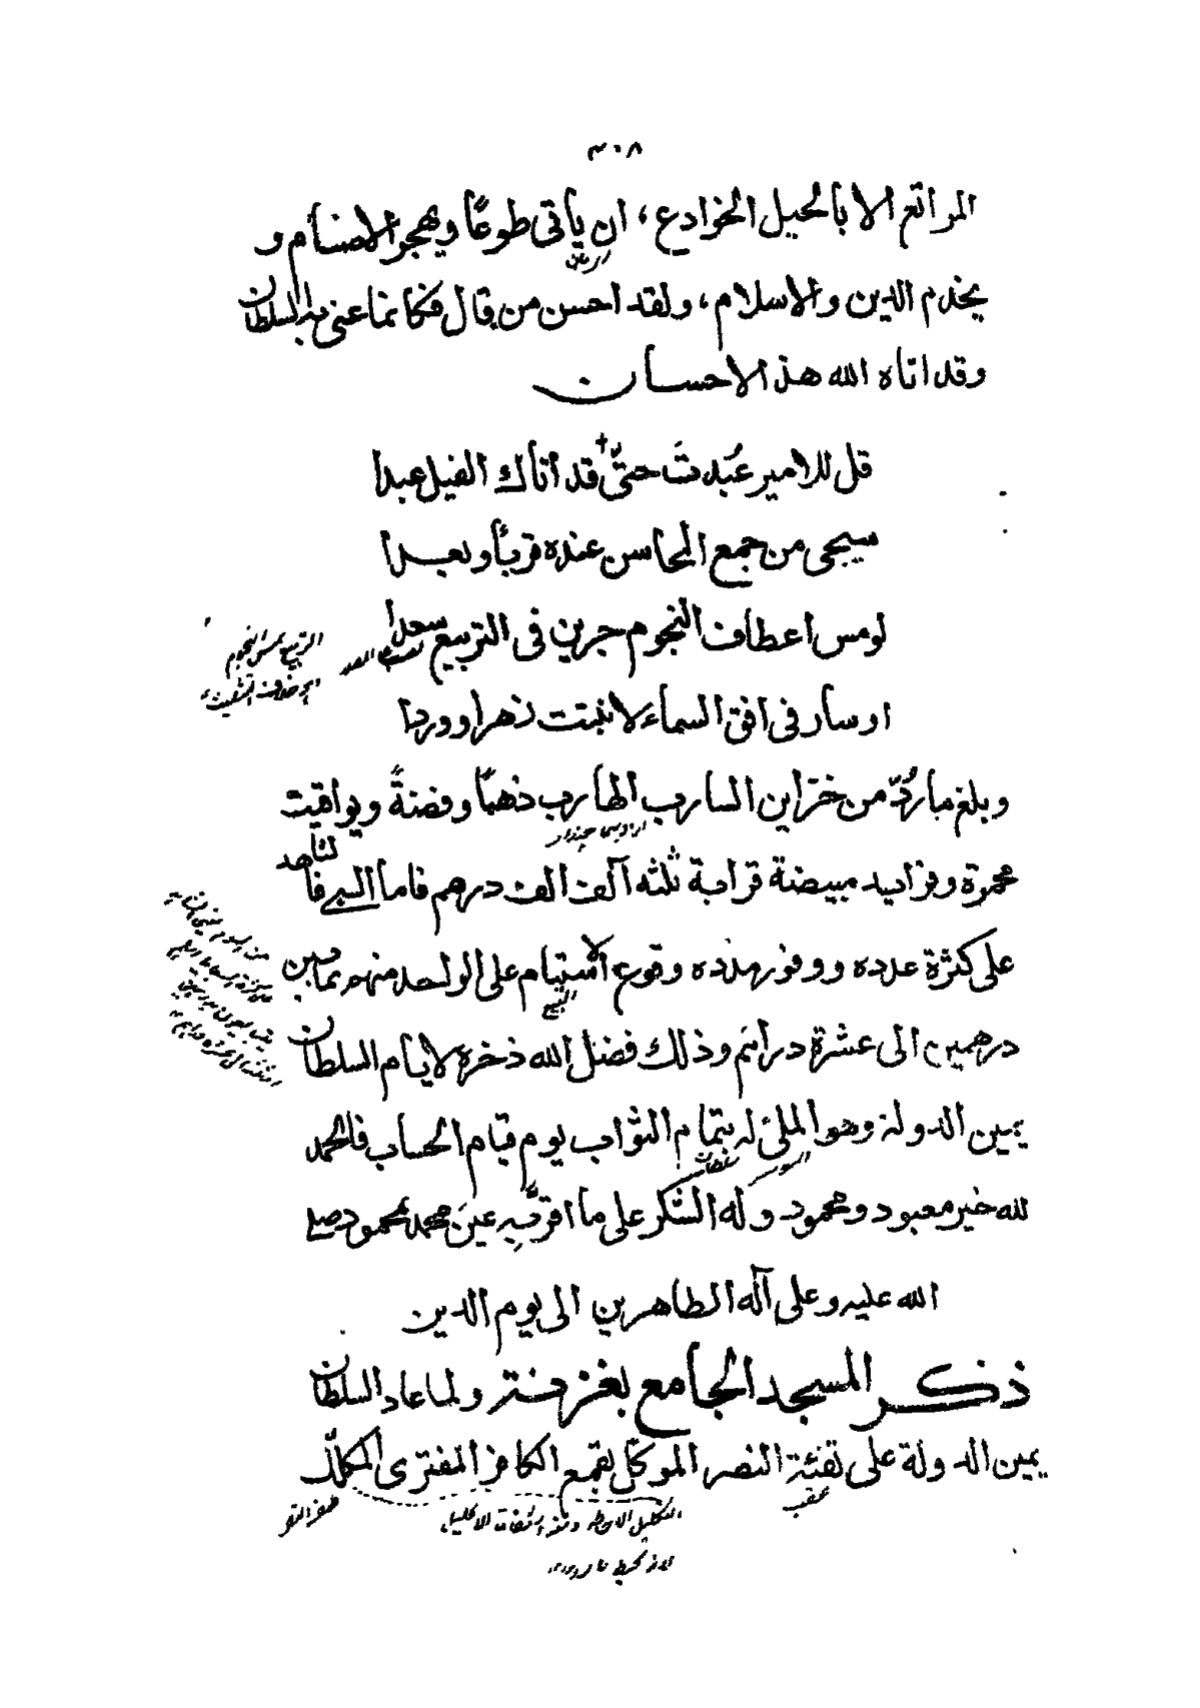 ٣٠٨
المراتع الا بالحيل الخوادع، ان يأتى طوعًا ويهجر الاصنام و
يخدم الدين والاسلام، ولقد احسن من قال فكانما عنى به السلطان
وقد اتاه الله هذ الاحسان
قل للامير عُبدتَ حتّى قد أتاك الفيل عبدا
سبحى من جمع المحاسن عنده قربًا وبعدا
لو مس اعطاف النجوم جرين فى التربيع سعدا
او سار فى افق السماء لانبتت زهرا ووردا
وبلغ ما رُدّ من خزاين السارب الهارب ذهبًا وفضةً ويواقيت
محمرة وفرايد مبيضة قرابة ثلثه آلف الف درهم فاما السبى فالشاهد
على كثرة عدده ووفور مدده وقوع الاستيام على الواحد منهم بما بين
درهمين الى عشرة دراهم وذلك فضل الله ذخره لايام السلطان
يمين الدولة وهو الملئ له بتمام الثواب يوم قيام الحساب فالحمد
لله خير معبود ومحمود وله الشكر على ما اقرّ به عين محمد بمحمود صلى
الله عليه وعلى آله الطاهرين الى يوم الدين
ذكر المسجد الجامع بغزنة ولما عاد السلطان
يمين الدولة على تفئة النصر الموكّل بقمع الكافر المفترى المكلّل